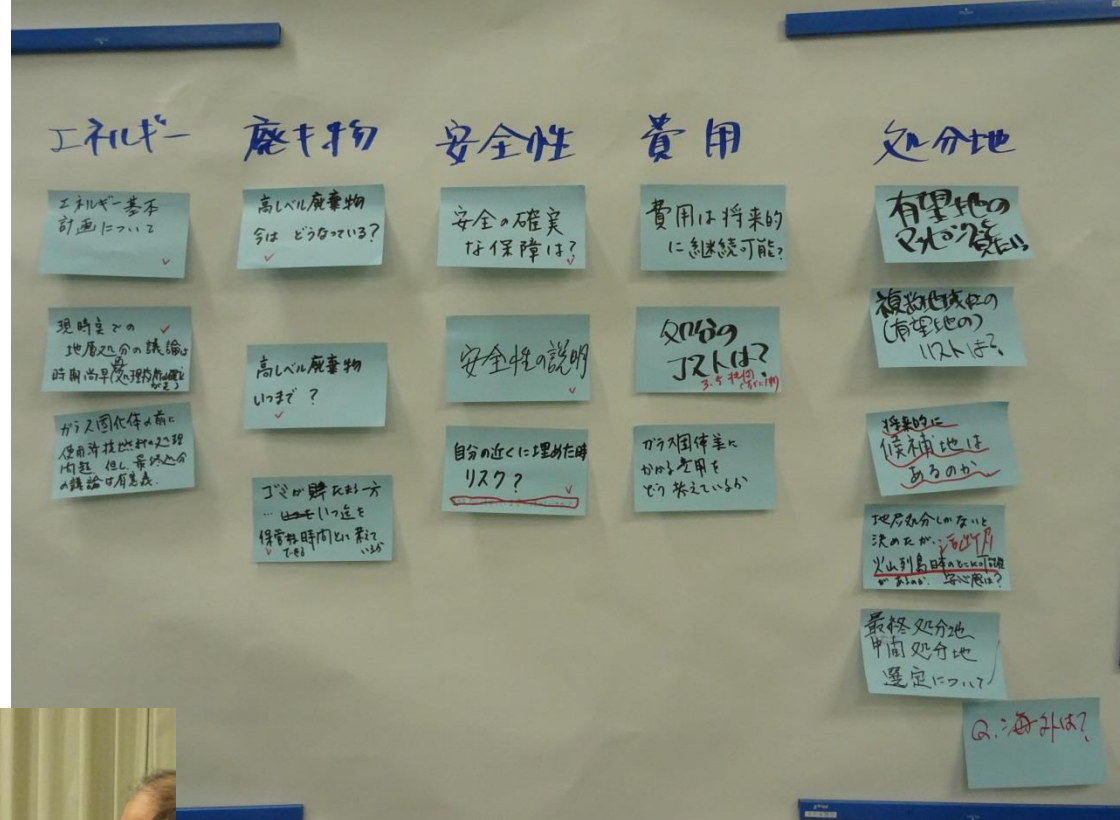 エネルギー
エネルギー基本
計画について
現時点での
地層処分の議論は
時期尚早
ガラス固化体の前に
使用済核燃料の処理
問題 但し、最終処分
の議論は有意義.
廃キ物
高レベル廃棄物
今は どうなっている?
高レベル廃棄物
いつまで?
ゴミが貯たまる一方
… いつ迄を
保管
できる
時間とに考えて
いるか
安全性
安全の確実
な保障は?
安全性の説明
自分の近くに埋めた時
リスク?
費用
費用は将来的
に継続可能?
処分の
コストは?
ガラス固体差に
かかる費用を
どう考えているか
処分地
有望地の
マッピングを
見たい!
複数地域の
(有望地の)
リストは?
将来的に
候補地は
あるのか
地層処分しかないと
決めたが…活断層
火山列島日本のどこに可能性
があるのか. 安心感は?
最終処分地
中間処分地
選定について
Q.海外は?